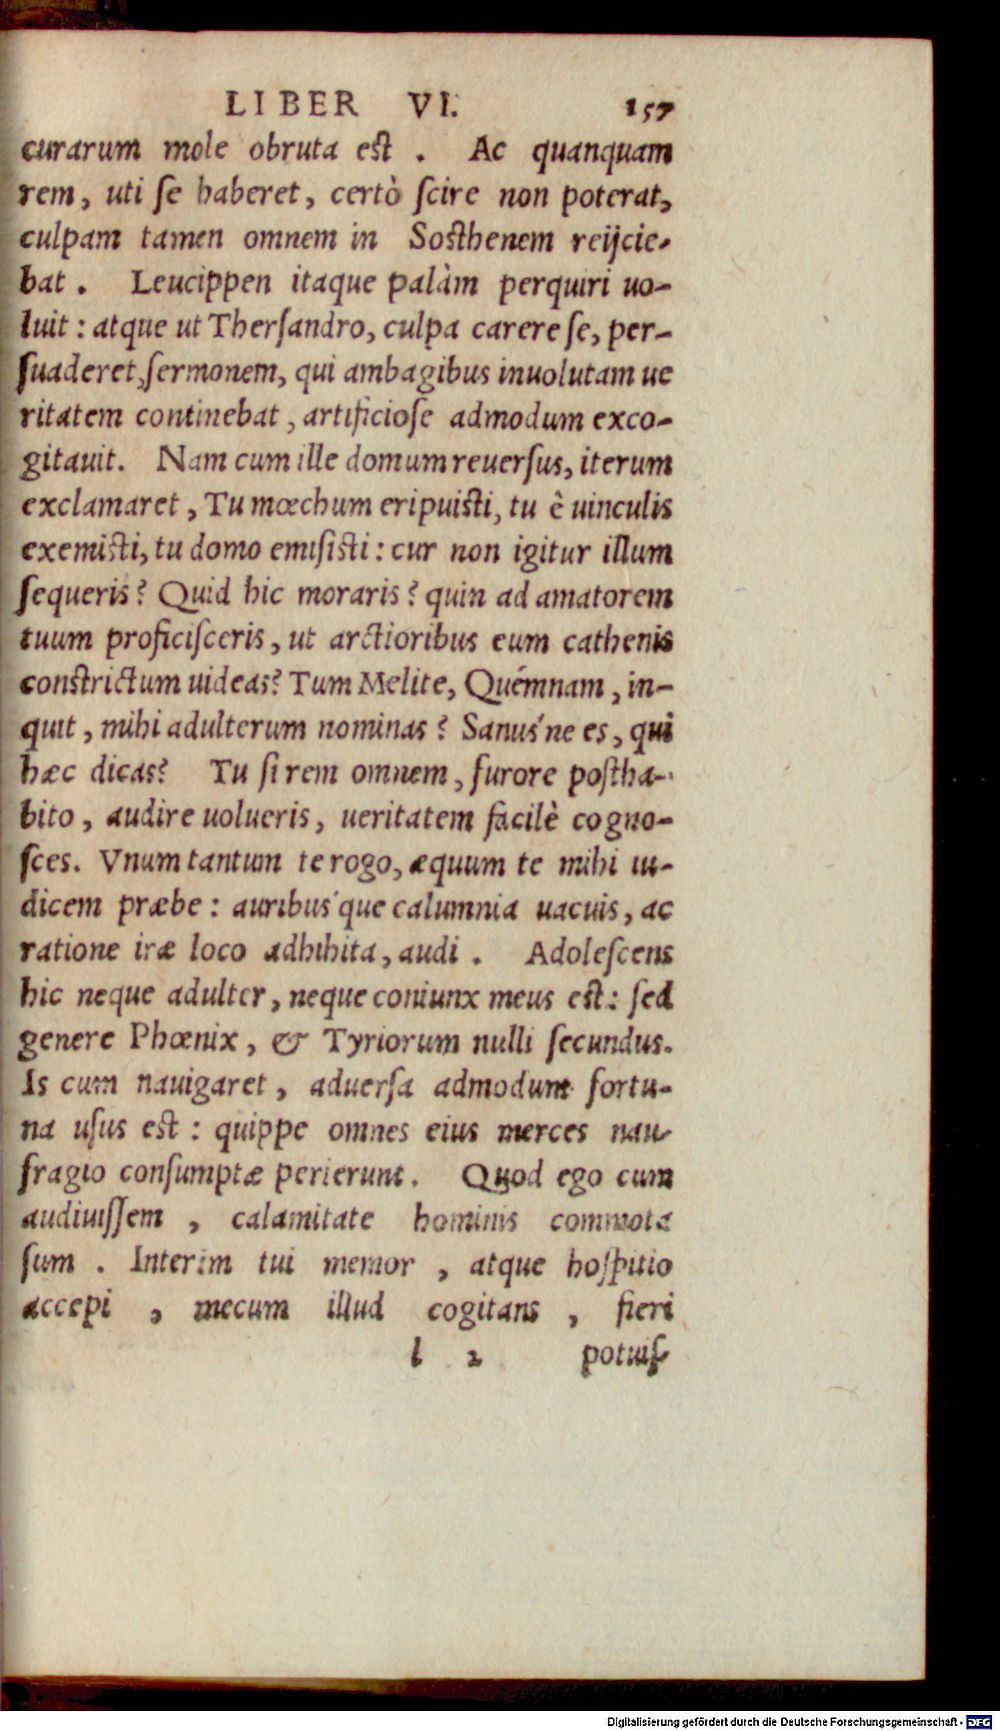 LIBER VI. 157
curarum mole obruta est . Ac quanquam
rem, uti ſe haberet, certò ſcire non poterat,
culpam tamen omnem in Sosthenem reijcie-
bat . Leucippen itaque palàm perquiri uo-
luit : atque ut Therſandro, culpa carere ſe, per-
ſuaderet, ſermonem, qui ambagibus inuolutam ue
ritatem continebat, artificioſe admodum exco-
gitauit. Nam cum ille domum reuerſus, iterum
exclamaret, Tu mœchum eripuisti, tu è uinculis
exemisti, tu domo emisisti : cur non igitur illum
ſequeris? Quid hic moraris? quin ad amatorem
tuum proficiſceris, ut arctioribus eum cathenis
constrictum uideas? Tum Melite, Quémnam, in-
quit, mihi adulterum nominas? Sanus'ne es, qui
hæc dicas? Tu ſi rem omnem, furore postha-
bito, audire uolueris, ueritatem facilè cogno-
ſces. Vnum tantum te rogo, æquum te mihi iu-
dicem præbe : auribus'que calumnia uacuis, ac
ratione iræ loco adhibita, audi . Adoleſcens
hic neque adulter, neque coniunx meus est : ſed
genere Phœnix, & Tyriorum nulli ſecundus.
Is cum nauigaret, aduerſa admodum fortu-
na uſus est : quippe omnes eius merces nau-
fragio conſumptæ perierunt. Quod ego cum
audiuiſſem, calamitate hominis commota
ſum . Interim tui memor, atque hoſpitio
accepi, mecum illud cogitans, fieri
l 2 potuiſ-
Digitalisierung gefördert durch die Deutsche Forschungsgemeinschaft - DFG